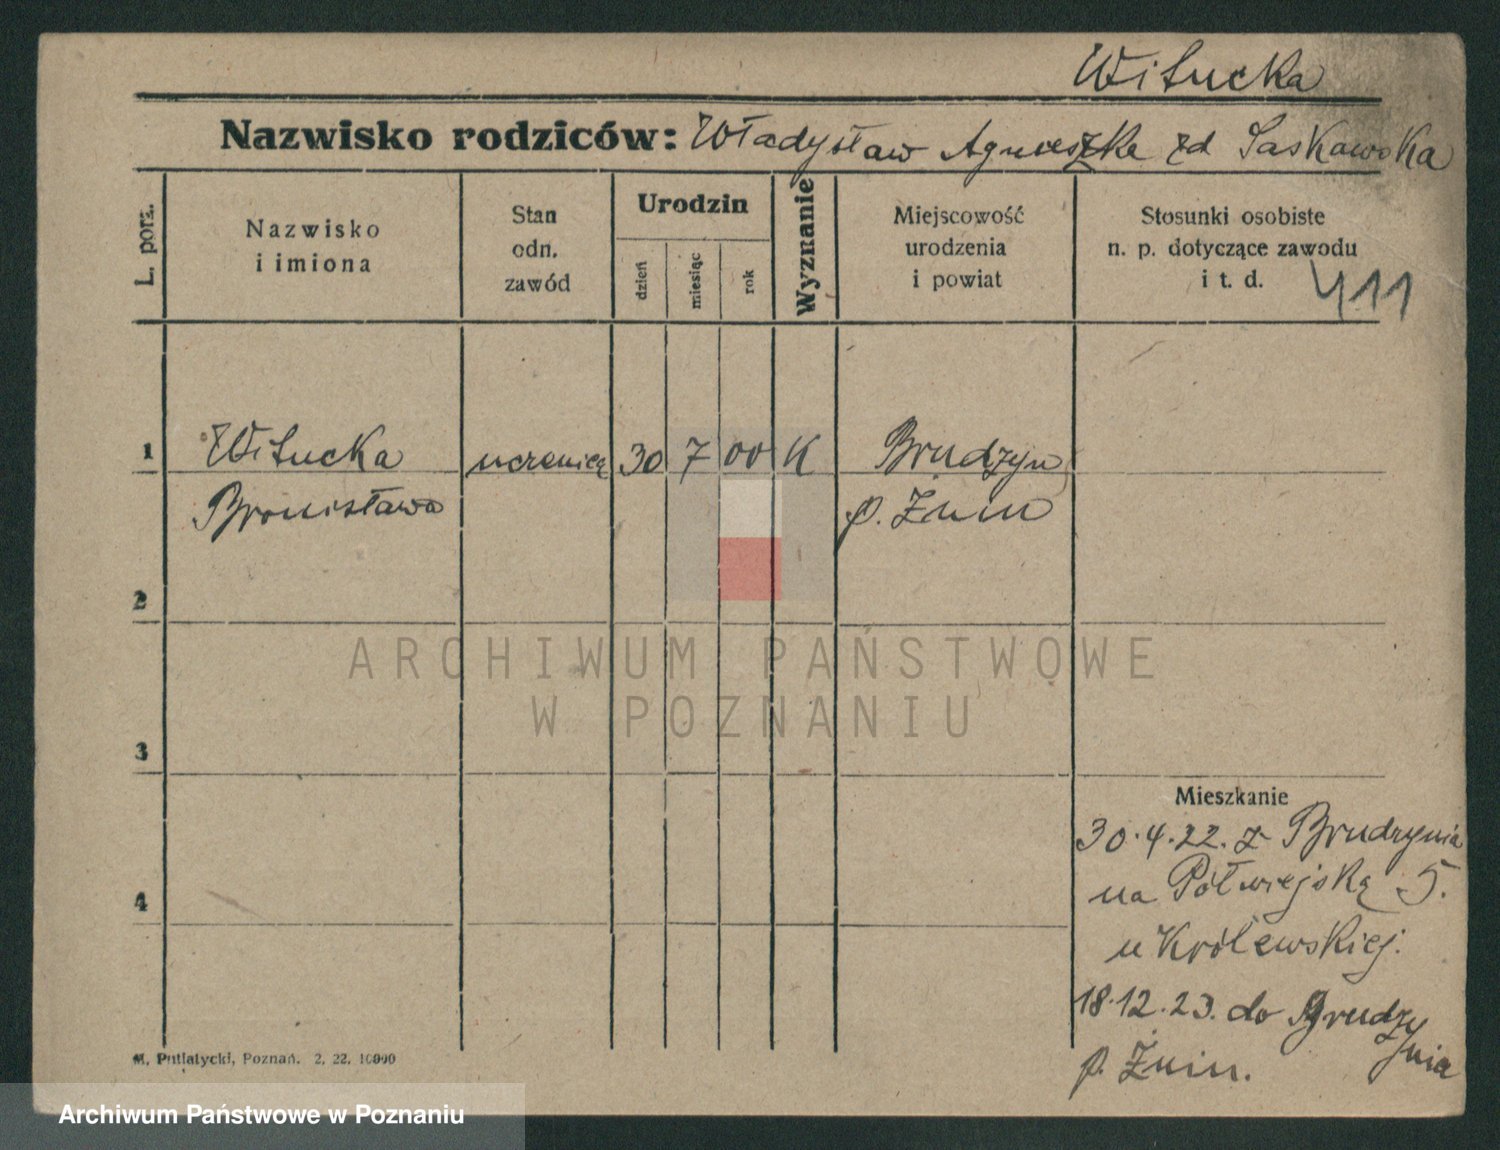 Witucka
Nazwisko rodziców: Władysław Agnieszka zd Saskowska
L. porz.
Nazwisko
i imiona
Stan
odn.
zawód
Urodzin
dzień
miesiąc
rok
Wyznanie
Miejscowość
urodzenia
i powiat
Stosunki osobiste
n. p. dotyczące zawodu
i t. d.
411
1 Witucka uczenicą 30 7 00 K Brudzyn
Bronisława p. Żnin
2
3
4
Mieszkanie
30.4.22. z Brudzynia
na Półwiejską 5.
u Królewskiej.
18.12.23. do Brudzy
nia
p. Żnin.
M. Putiatycki, Poznań. 2. 22. 10000
ARCHIWUM PAŃSTWOWE
W POZNANIU
Archiwum Państwowe w Poznaniu